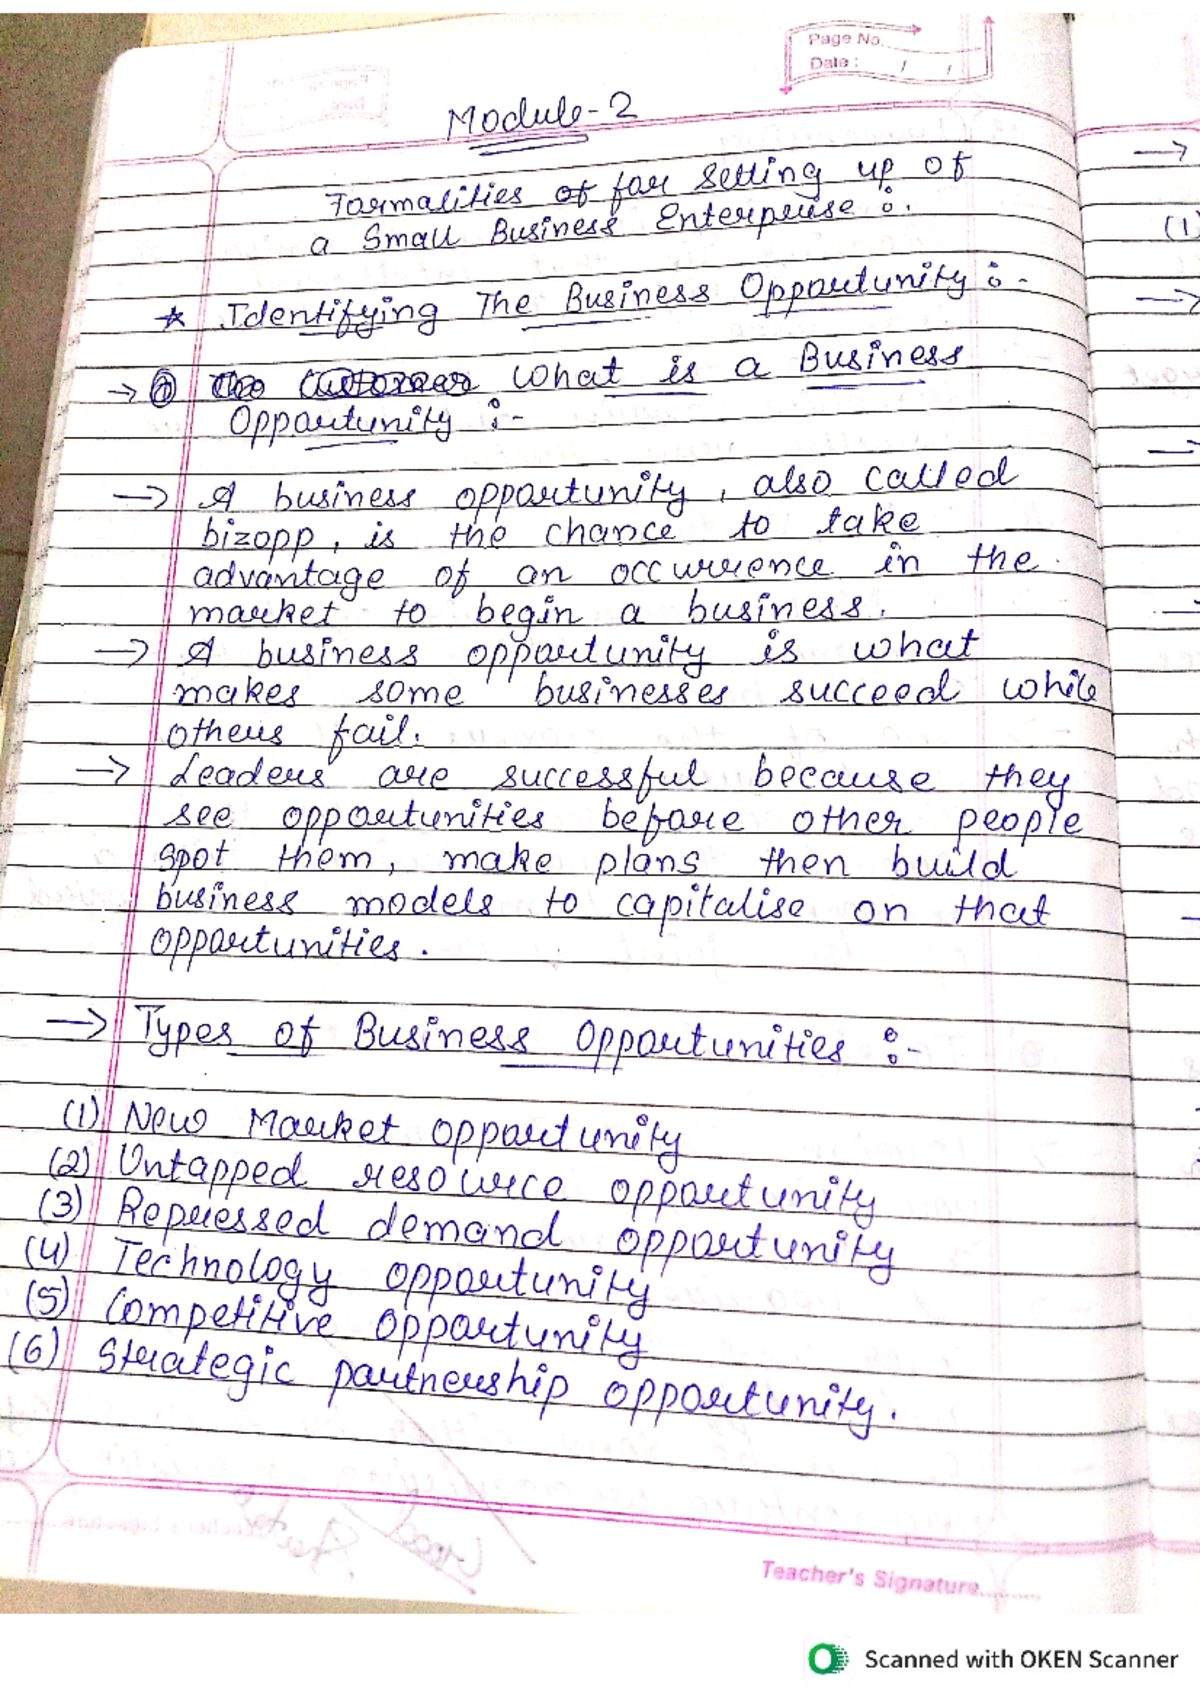 Page No.
Date : / /
Module-2
Formalities of for setting up of
a Small Business Enterprise :.
* Identifying The Business Opportunity :-
→ What is a Business
Opportunity :-
→ A business opportunity, also called
bizopp, is the chance to take
advantage of an occurrence in the
market to begin a business.
→ A business opportunity is what
makes some businesses succeed while
others fail.
→ Leaders are successful because they
see opportunities before other people
spot them, make plans then build
business models to capitalise on that
opportunities.
→ Types of Business Opportunities :-
(1) New Market opportunity
(2) Untapped resource opportunity
(3) Repressed demand opportunity
(4) Technology opportunity
(5) Competitive opportunity
(6) Strategic partnership opportunity.
Teacher's Signature..........
→
(1)
→
Scanned with OKEN Scanner